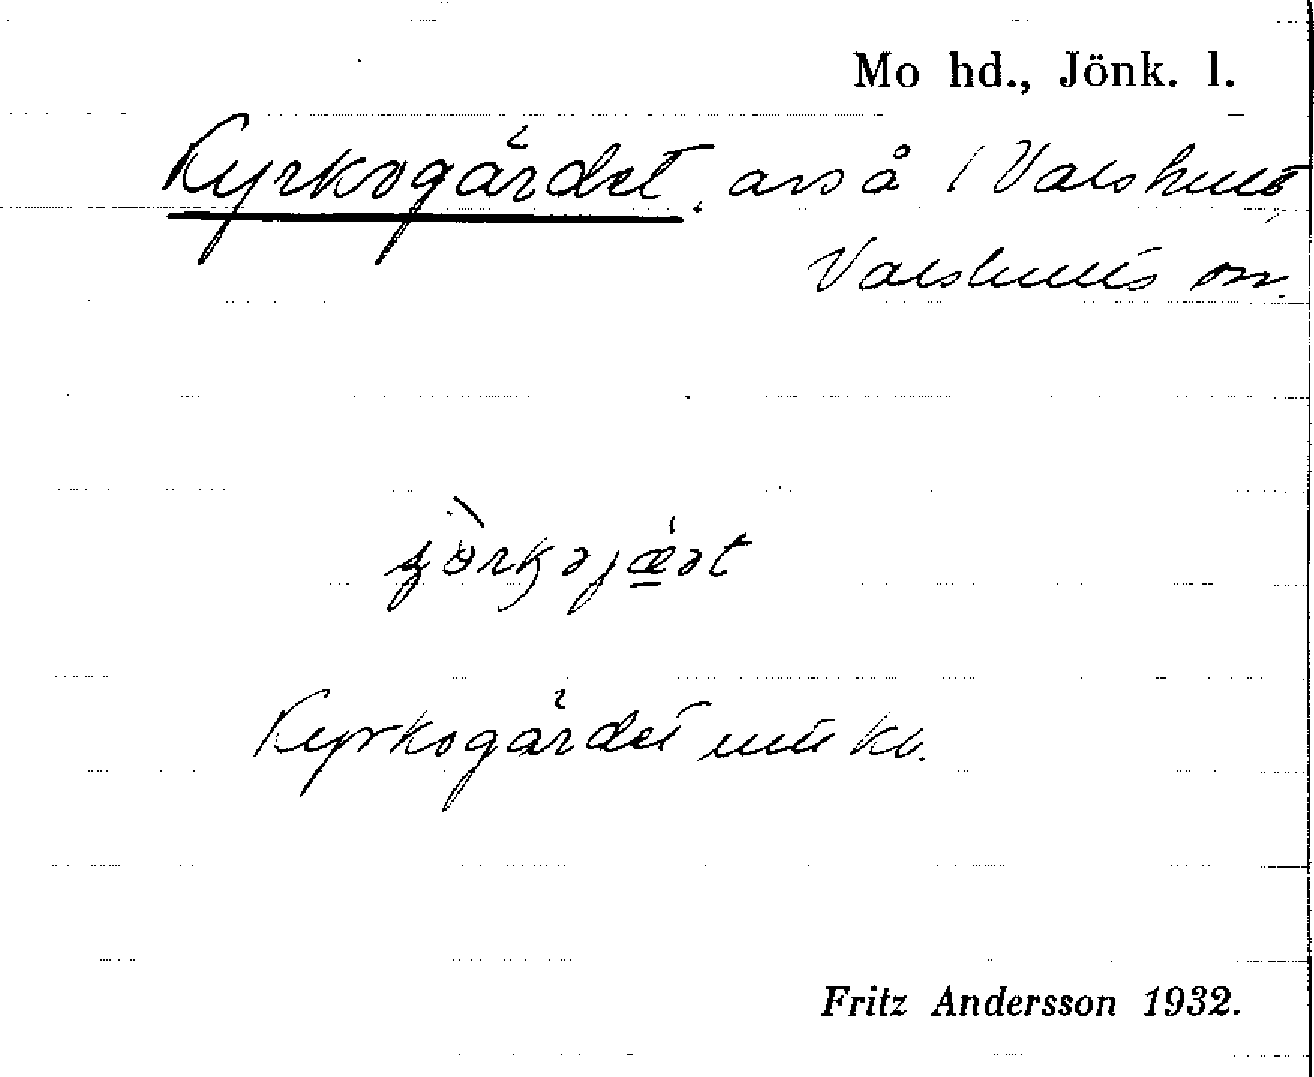 Mo hd., Jönk. l.
Kyrkogärdet, avs å i Valshult,
Valshults sn.
Kyrkogärdet utt kb.
Fritz Andersson 1932.